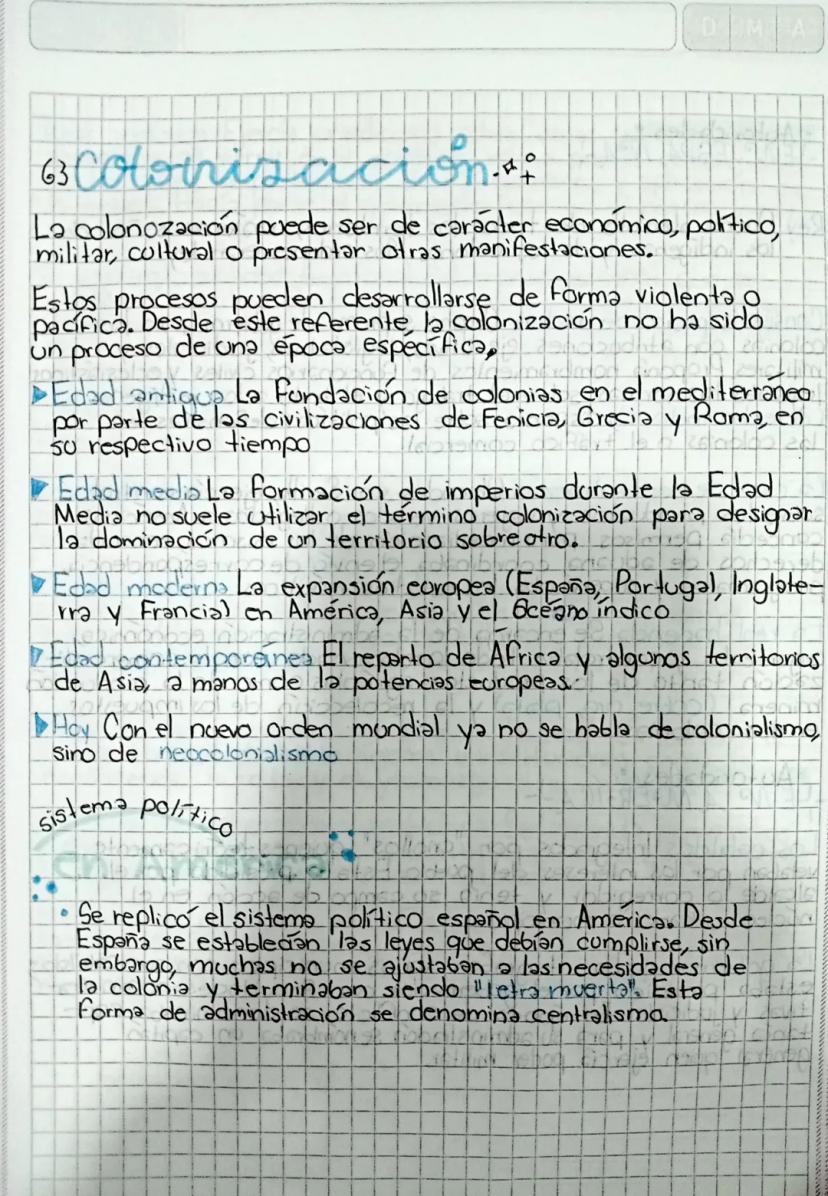 D M A
63 Colonización
La colonozación puede ser de carácter económico, político,
militar, cultural o presentar otras manifestaciones.
Estos procesos pueden desarrollarse de forma violenta o
pacífica. Desde este referente, la colonización no ha sido
un proceso de una época específica,
Edad antigua La fundación de colonias en el mediterráneo
por parte de las civilizaciones de Fenicia, Grecia y Roma, en
su respectivo tiempo
Edad media La formación de imperios durante la Edad
Media no suele utilizar el término colonización para designar
la dominación de un territorio sobre otro.
Edad moderna La expansión europea (España, Portugal, Inglate-
rra y Francia) en América, Asia y el Océano índico
Edad contemporánea El reparto de África y algunos territorios
de Asia, a manos de la potencias europeas.
Hoy Con el nuevo orden mundial ya no se habla de colonialismo,
sino de neocolonialismo
sistema político
en América
• Se replicó el sistema político español en América. Desde
España se establecían las leyes que debían cumplirse, sin
embargo, muchas no se ajustaban a las necesidades de
la colonia y terminaban siendo "letra muerta". Esta
forma de administración se denomina centralismo.